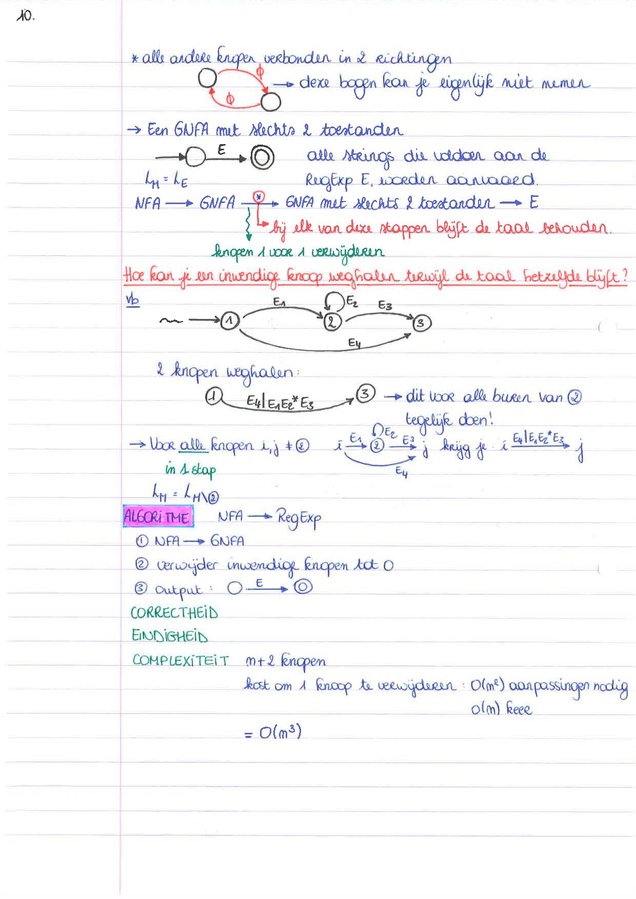 10.
* alle andere knopen verbonden in 2 richtingen
ϕ
→ deze bogen kan je eigenlijk niet nemen
ϕ
→ Een GNFA met slechts 2 toestanden
E
alle strings die voldoen aan de
L_M = L_E
RegExp E, worden aanvaard.
NFA → GNFA →(*) GNFA met slechts 2 toestanden → E
bij elk van deze stappen blijft de taal behouden.
knopen 1 voor 1 verwijderen
Hoe kan je een inwendige knoop weghalen terwijl de taal hetzelfde blijft?
vb
E1 E2 E3
1 2 3
E4
2 knopen weghalen:
1 E4|E1E2*E3 3 → dit voor alle buren van ②
tegelijk doen!
→ Voor alle knopen i,j ≠ ② i E1 ② E2 E3 j krijg je i E4|E1E2*E3 j
in 1 stap
E4
L_M = L_M\②
ALGORITME NFA → RegExp
① NFA → GNFA
② verwijder inwendige knopen tot 0
③ output: E
CORRECTHEID
EINDIGHEID
COMPLEXITEIT m+2 knopen
kost om 1 knoop te verwijderen: O(m²) aanpassingen nodig
O(m) keer
= O(m³)